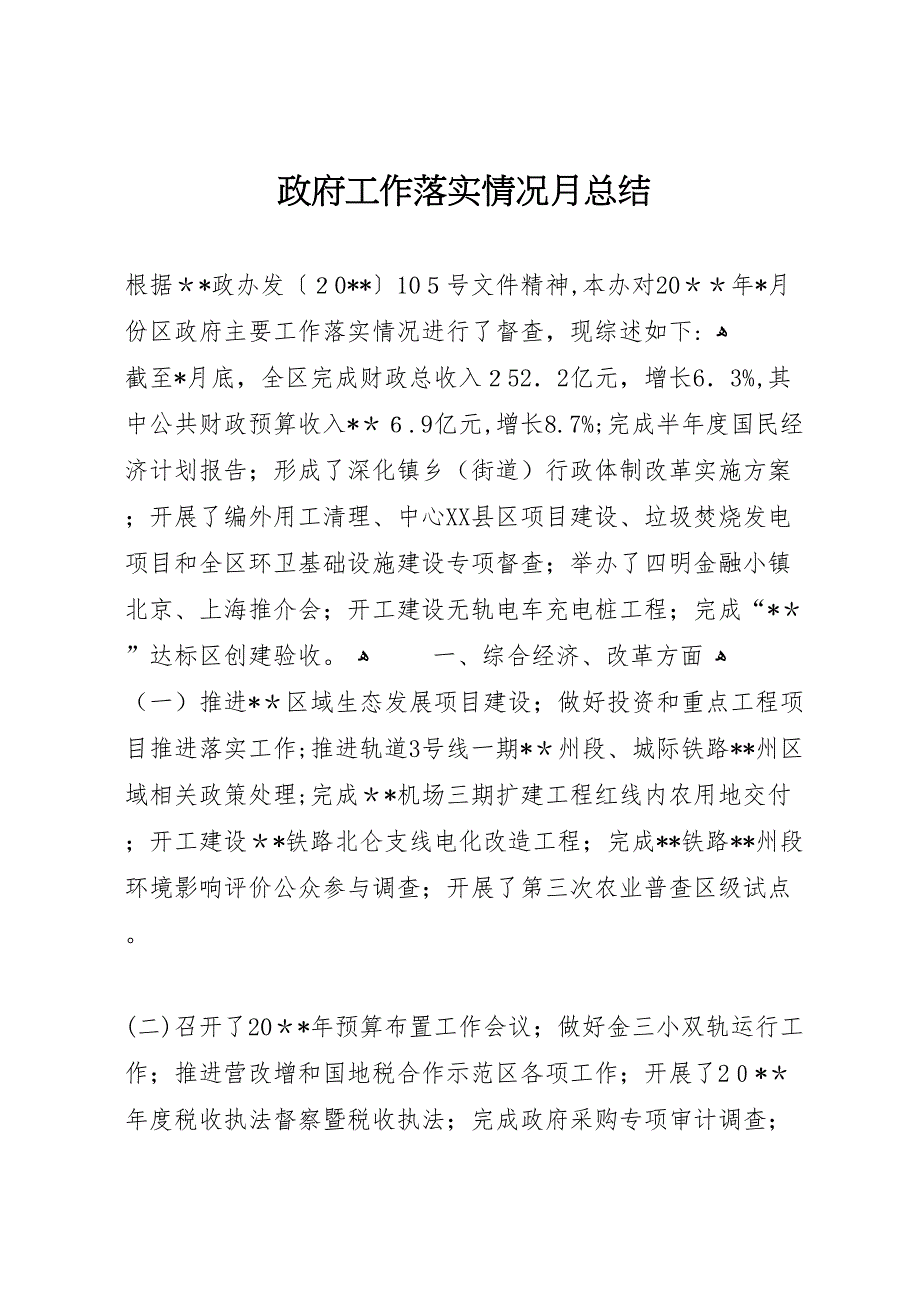 政府工作落实情况月总结
根据＊*政办发〔２0**〕10５号文件精神,本办对20＊＊年*月
份区政府主要工作落实情况进行了督查，现综述如下: ﻫ
截至*月底，全区完成财政总收入２52．2亿元，增长6．3%,其
中公共财政预算收入*＊６.9亿元,增长8.7%;完成半年度国民经
济计划报告；形成了深化镇乡（街道）行政体制改革实施方案
；开展了编外用工清理、中心XX县区项目建设、垃圾焚烧发电
项目和全区环卫基础设施建设专项督查；举办了四明金融小镇
北京、上海推介会；开工建设无轨电车充电桩工程；完成“*＊
”达标区创建验收。ﻫ 一、综合经济、改革方面ﻫ
（一）推进*＊区域生态发展项目建设；做好投资和重点工程项
目推进落实工作;推进轨道3号线一期*＊州段、城际铁路**州区
域相关政策处理;完成＊*机场三期扩建工程红线内农用地交付
；开工建设＊*铁路北仑支线电化改造工程；完成**铁路**州段
环境影响评价公众参与调查；开展了第三次农业普查区级试点
。
(二)召开了20＊*年预算布置工作会议；做好金三小双轨运行工
作；推进营改增和国地税合作示范区各项工作；开展了２0*＊
年度税收执法督察暨税收执法；完成政府采购专项审计调查；